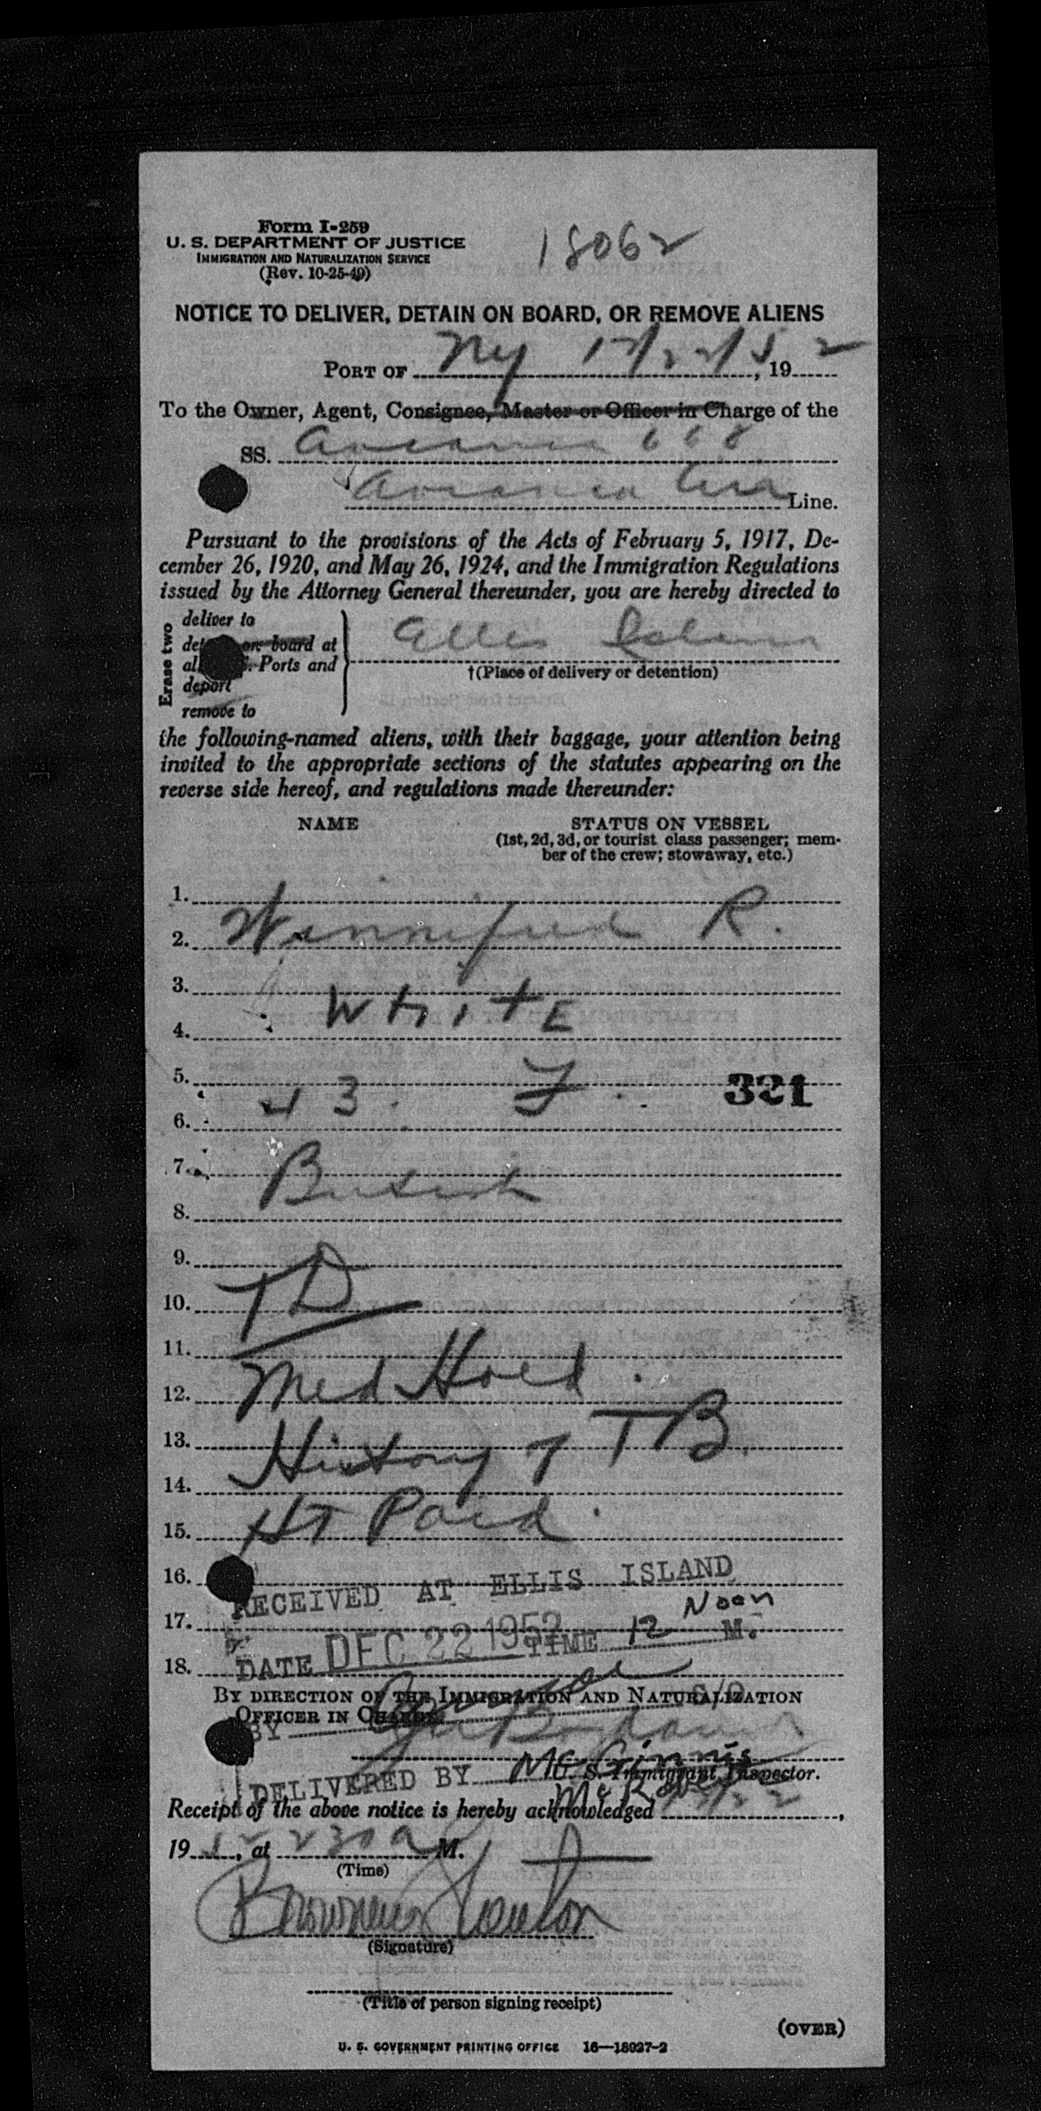 Form I-259
U. S. DEPARTMENT OF JUSTICE
IMMIGRATION AND NATURALIZATION SERVICE
(Rev. 10-25-49)
18062
NOTICE TO DELIVER, DETAIN ON BOARD, OR REMOVE ALIENS
PORT OF NY 12/22/52, 19
To the Owner, Agent, Consignee, Master or Officer in Charge of the
SS. Avianca 668
Avianca Line.
Pursuant to the provisions of the Acts of February 5, 1917, De-
cember 26, 1920, and May 26, 1924, and the Immigration Regulations
issued by the Attorney General thereunder, you are hereby directed to
Erase two
deliver to
on board at
Ports and
deport
remove to
Ellis Island
†(Place of delivery or detention)
the following-named aliens, with their baggage, your attention being
invited to the appropriate sections of the statutes appearing on the
reverse side hereof, and regulations made thereunder:
NAME STATUS ON VESSEL
(1st, 2d, 3d, or tourist class passenger; mem-
ber of the crew; stowaway, etc.)
1.
2. Winnifred R.
3.
4. WHITE
5.
6. 43. F. 321
7.
8. British
9.
10. TD
11.
12. Med Hold.
13.
14. History of TB.
15. HT Paid.
16. RECEIVED AT ELLIS ISLAND
17. Noon
18. DATE DEC 22 1952 TIME 12 M.
BY DIRECTION OF THE IMMIGRATION AND NATURALIZATION
OFFICER IN CHARGE:
BY
U. S. Immigrant Inspector.
DELIVERED BY McGinnis
Receipt of the above notice is hereby acknowledged 12/22,
1952, at 230 a M.
(Time)
(Signature)
(Title of person signing receipt)
(OVER)
U. S. GOVERNMENT PRINTING OFFICE 16—18027-2